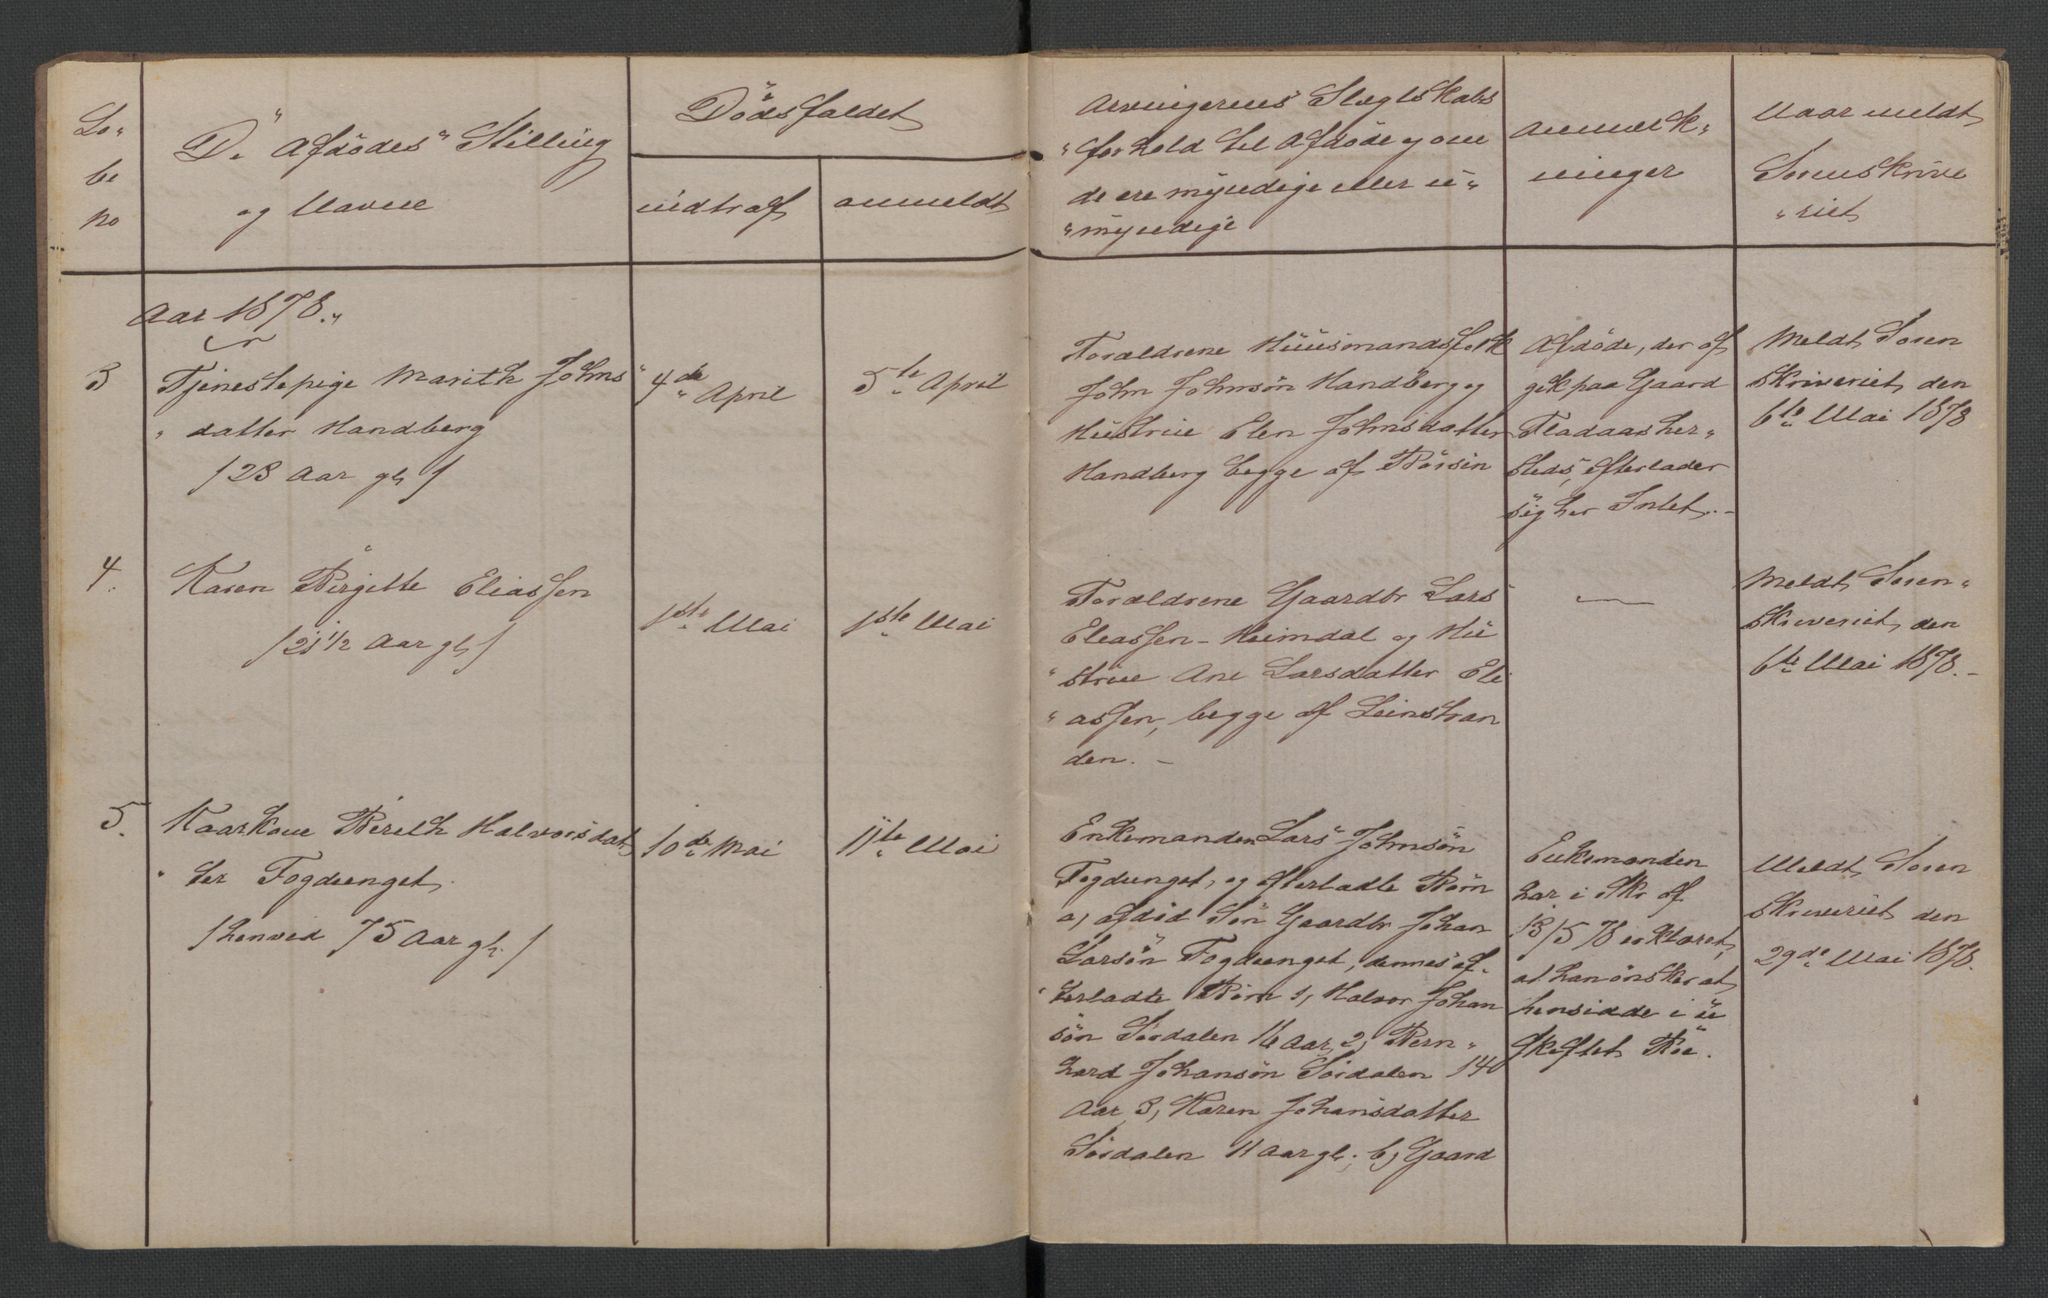 Lo-
be
no
De Afdödes Stilling
og Navne
Dödsfaldet
indtraf
anmeldt
Arvingernes Slægtskabs
"forhold til Afdöde og om
de ere myndige eller u"
"myndige
Anmærk"
ninger
Naar meldt
Sorenskrive
"riet
Aar 1878."
3
Tjenestepige Marith Johns"
" datter Handberg
/23 Aar gl/
4de April
5te April
Forældrene Huusmandsfolk
John Johnsön Handberg og
Hustrue Elen Johnsdatter
Handberg begge af Börsen
Afdöde, der af
gik paa Gaard
Fladaas her"
steds, efterlader
sig her Intet.-
Meldt Soren
skriveriet den
6te Mai 1878
4.
Karen Birgitte Eliassen
/21 1/2 Aar gl/
1ste Mai
1ste Mai
Forældrene Gaardbr Lars
Eleassen - Heimdal og Hu
" strue Ane Larsdatter Eli
" assen, begge af Leinstran
den. -
—
Meldt Soren"
skriveriet den
6te Mai 1878.-
5.
Kaarkone Bereth Halvorsdat
" ter Fogdenget
/henved 75 Aar gl./
10de Mai
11te Mai
Enkemanden Lars Johnsön
Fogdenget, og efterladte Börn
a, afdöd Sön Gaardbr Johan
Larsön Fogdenget, dennes ef-
"terladte Börn 1, Halvor Johan
sön Sördalen 16 Aar, 2, Bern"
hard Johansön Sördalen 14
Aar, 3, Karen Johansdatter
Sördalen 11 Aar gl., b, Gaard
Enkemanden
har i Skr af
13/5 78 erklæret,
at han önsker at
hensidde i u
skiftet Boe.
Meldt Soren
skriveriet den
29de Mai 1878.